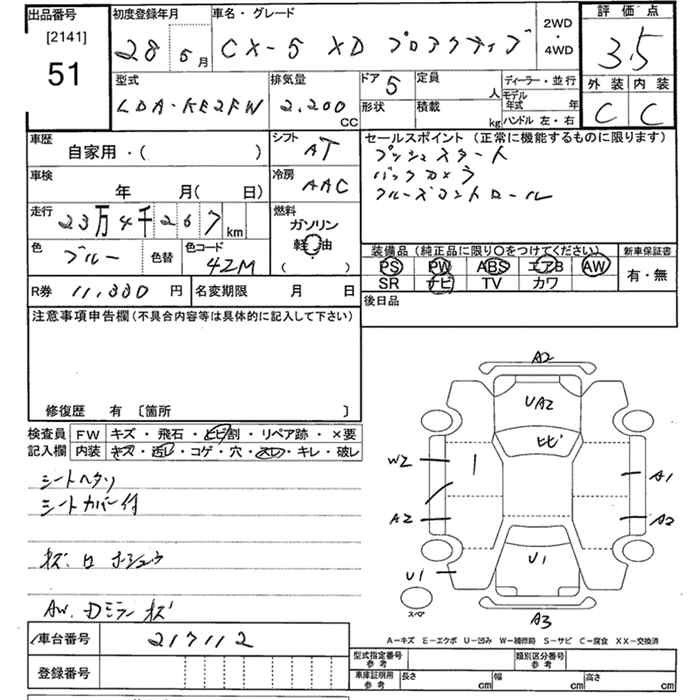 出品番号
[2141]
51
初度登録年月
28 5月
車名・グレード
CX-5 XD プロアクティブ
2WD
・
4WD
評価点
3.5
外装 内装
C C
型式
LDA-KE2FW
排気量
2,200
CC
ドア 5
形状
定員
人
積載
kg
ディーラー・並行
モデル
年式 年
ハンドル 左・右
車歴
自家用・( )
シフト
AT
車検
年 月( 日)
冷房
AAC
走行
23万4千267km
燃料
ガソリン
軽油
( )
色
ブルー
色替
色コード
42M
R券 11,330 円
名変期限 月 日
セールスポイント(正常に機能するものに限ります)
プッシュスタート
バックカメラ
クルーズコントロール
装備品(純正品に限り〇をつけてください)
PS PW ABS エアB AW
SR ナビ TV カワ
新車保証書
有・無
後日品
注意事項申告欄(不具合内容等は具体的に記入して下さい)
修復歴 有 〔箇所 〕
検査員
記入欄
FW キズ・飛石・ヒビ割・リペア跡・×要
内装 キズ・汚レ・コゲ・穴・スレ・キレ・破レ
シートヘタリ
シートカバー付
AW.Dミラーキズ
車台番号 217112
登録番号
A2
UA2
ヒビ
W2
A1
A2
A2
U1
U1
スペア
A3
A-キズ E-エクボ U-凹み W-補修跡 S-サビ C-腐食 XX-交換済
型式指定番号
参考
類別区分番号
参考
車庫証明用
参考
長さ cm
幅 cm
高さ cm